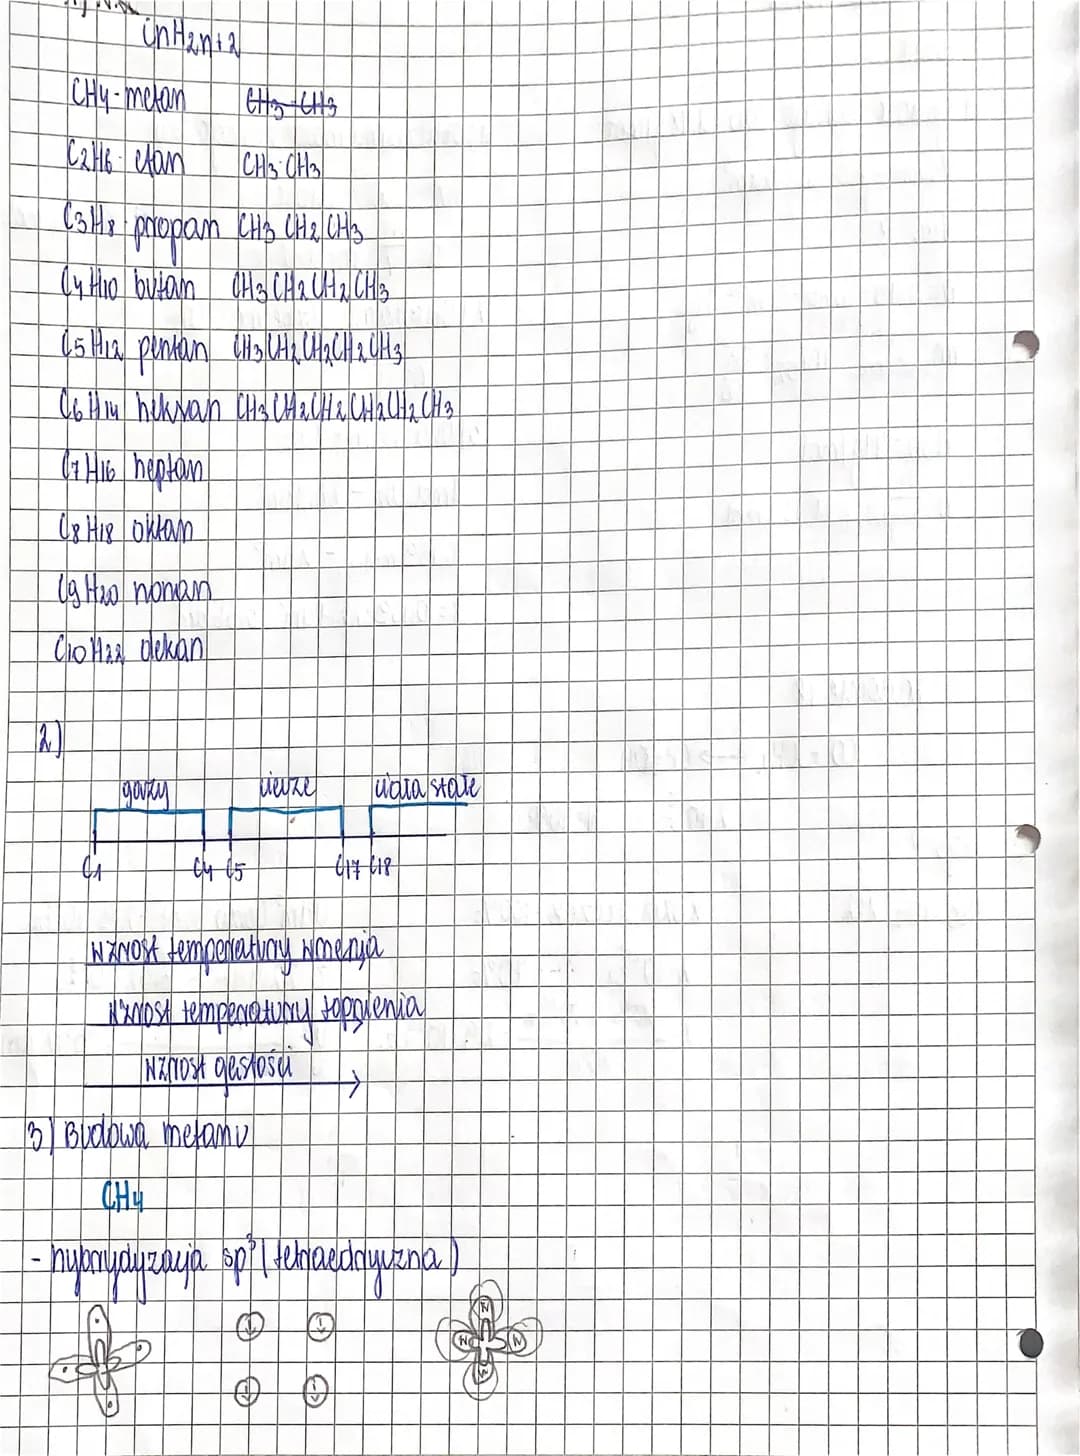 CnH2n+2
CH4 - metan CH3-CH3
C2H6 - etan CH3-CH3
C3H8 - propan CH3 CH2 CH3
C4H10 butan CH3 CH2 CH2 CH3
C5H12 pentan CH3 CH2 CH2 CH2 CH3
C6H14 heksan CH3 CH2 CH2 CH2 CH2 CH3
C7H16 heptan
C8H18 oktan
C9H20 nonan
C10H22 dekan
2)
gazy ciecze ciała stałe
C1 C4 C5 C17 C18
wzrost temperatury wrzenia
wzrost temperatury topnienia
wzrost gęstości
3) Budowa metanu
CH4
- hybrydyzacja sp3 (tetraedryczna)